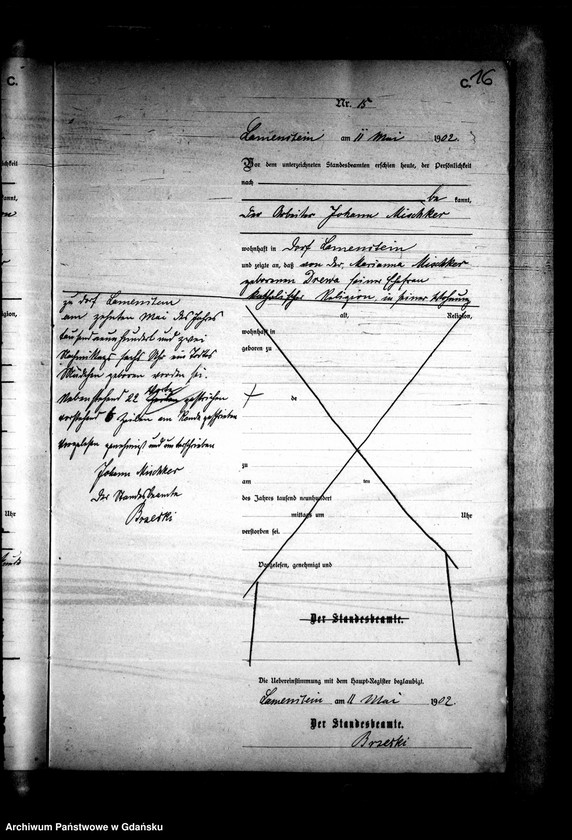 C. 16
Nr. 15
Lamenstein am 11 Mai 1902.
Vor dem unterzeichneten Standesbeamten erschien heute, der Persönlichkeit
nach
be kannt,
der Arbeiter Johann Mischker
wohnhaft in Dorf Lamenstein
und zeigte an, daß von der, Marianna Mischker
geborenen Drewa seiner Ehefrau
katholischer Religion, in seiner Wohnung
zu Dorf Lamenstein
am zehnten Mai des Jahres
tausend neunhundert und zwei
Nachmittags sechs Uhr ein todtes
Mädchen geboren worden sei.
Nebenstehend 22 gestrichen
vorstehend 6 Zeilen am Rande
Vorgelesen genehmigt und unterschrieben
Johann Mischker
Der Standesbeamte
Brzeski
alt, Religion,
wohnhaft in
geboren zu
de
zu
am
des Jahres tausend neunhundert
mittags um Uhr
verstorben sei.
Vorgelesen, genehmigt und
Der Standesbeamte.
Die Uebereinstimmung mit dem Haupt-Register beglaubigt.
Lamenstein am 11 Mai 1902.
Der Standesbeamte.
Brzeski
C.
Religion,
Uhr
Archiwum Państwowe w Gdańsku